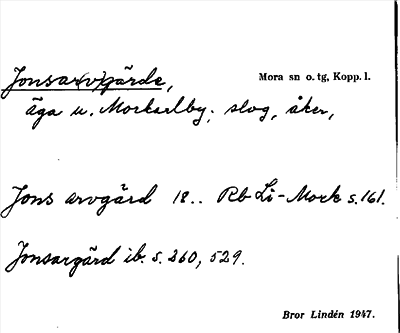 Jonsar(v)gärde,
Mora sn o. tg, Kopp. l.
äga u. Morkarlby. slog, åker,
Jons arvgärd 18.. Rb Li-Mork s. 161.
Jonsargärd ib. s. 260, 529.
Bror Lindén 1947.